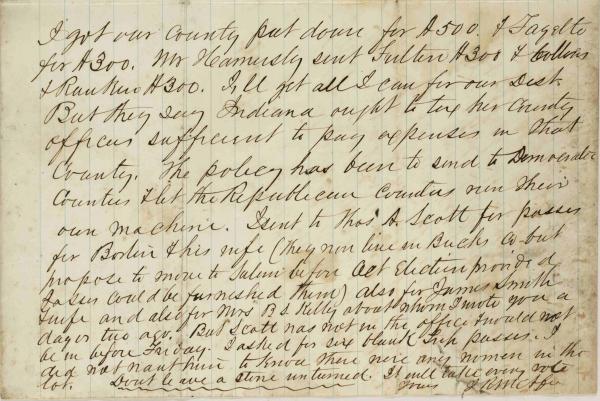 I got our County put down for $500. & Fayette
for $300. Mr Hamersly sent Fulton $300 &
& Rankin $300. I,ll get all I can for our Dist.
But they say Indiana ought to tax her County
officers sufficient to pay expenses in that
County. The policy has been to send to Democratic
Counties & let the Republican Counties run their
own machine. I sent to Thos A. Scott for passes
for & his wife (They now live in Bucks Co. but
propose to move to Salem before Oct Election provided
Passes could be furnished them) also for James Smith
& wife and also for Mrs B S Kelly about whom I wrote you a
day or two ago. But Scott was not in the office & would not
be in before Friday. I asked for six blank Trip passes. I
did not want him to know there were any women in the
lot. Dont leave a stone unturned. It will take every vote
Yours